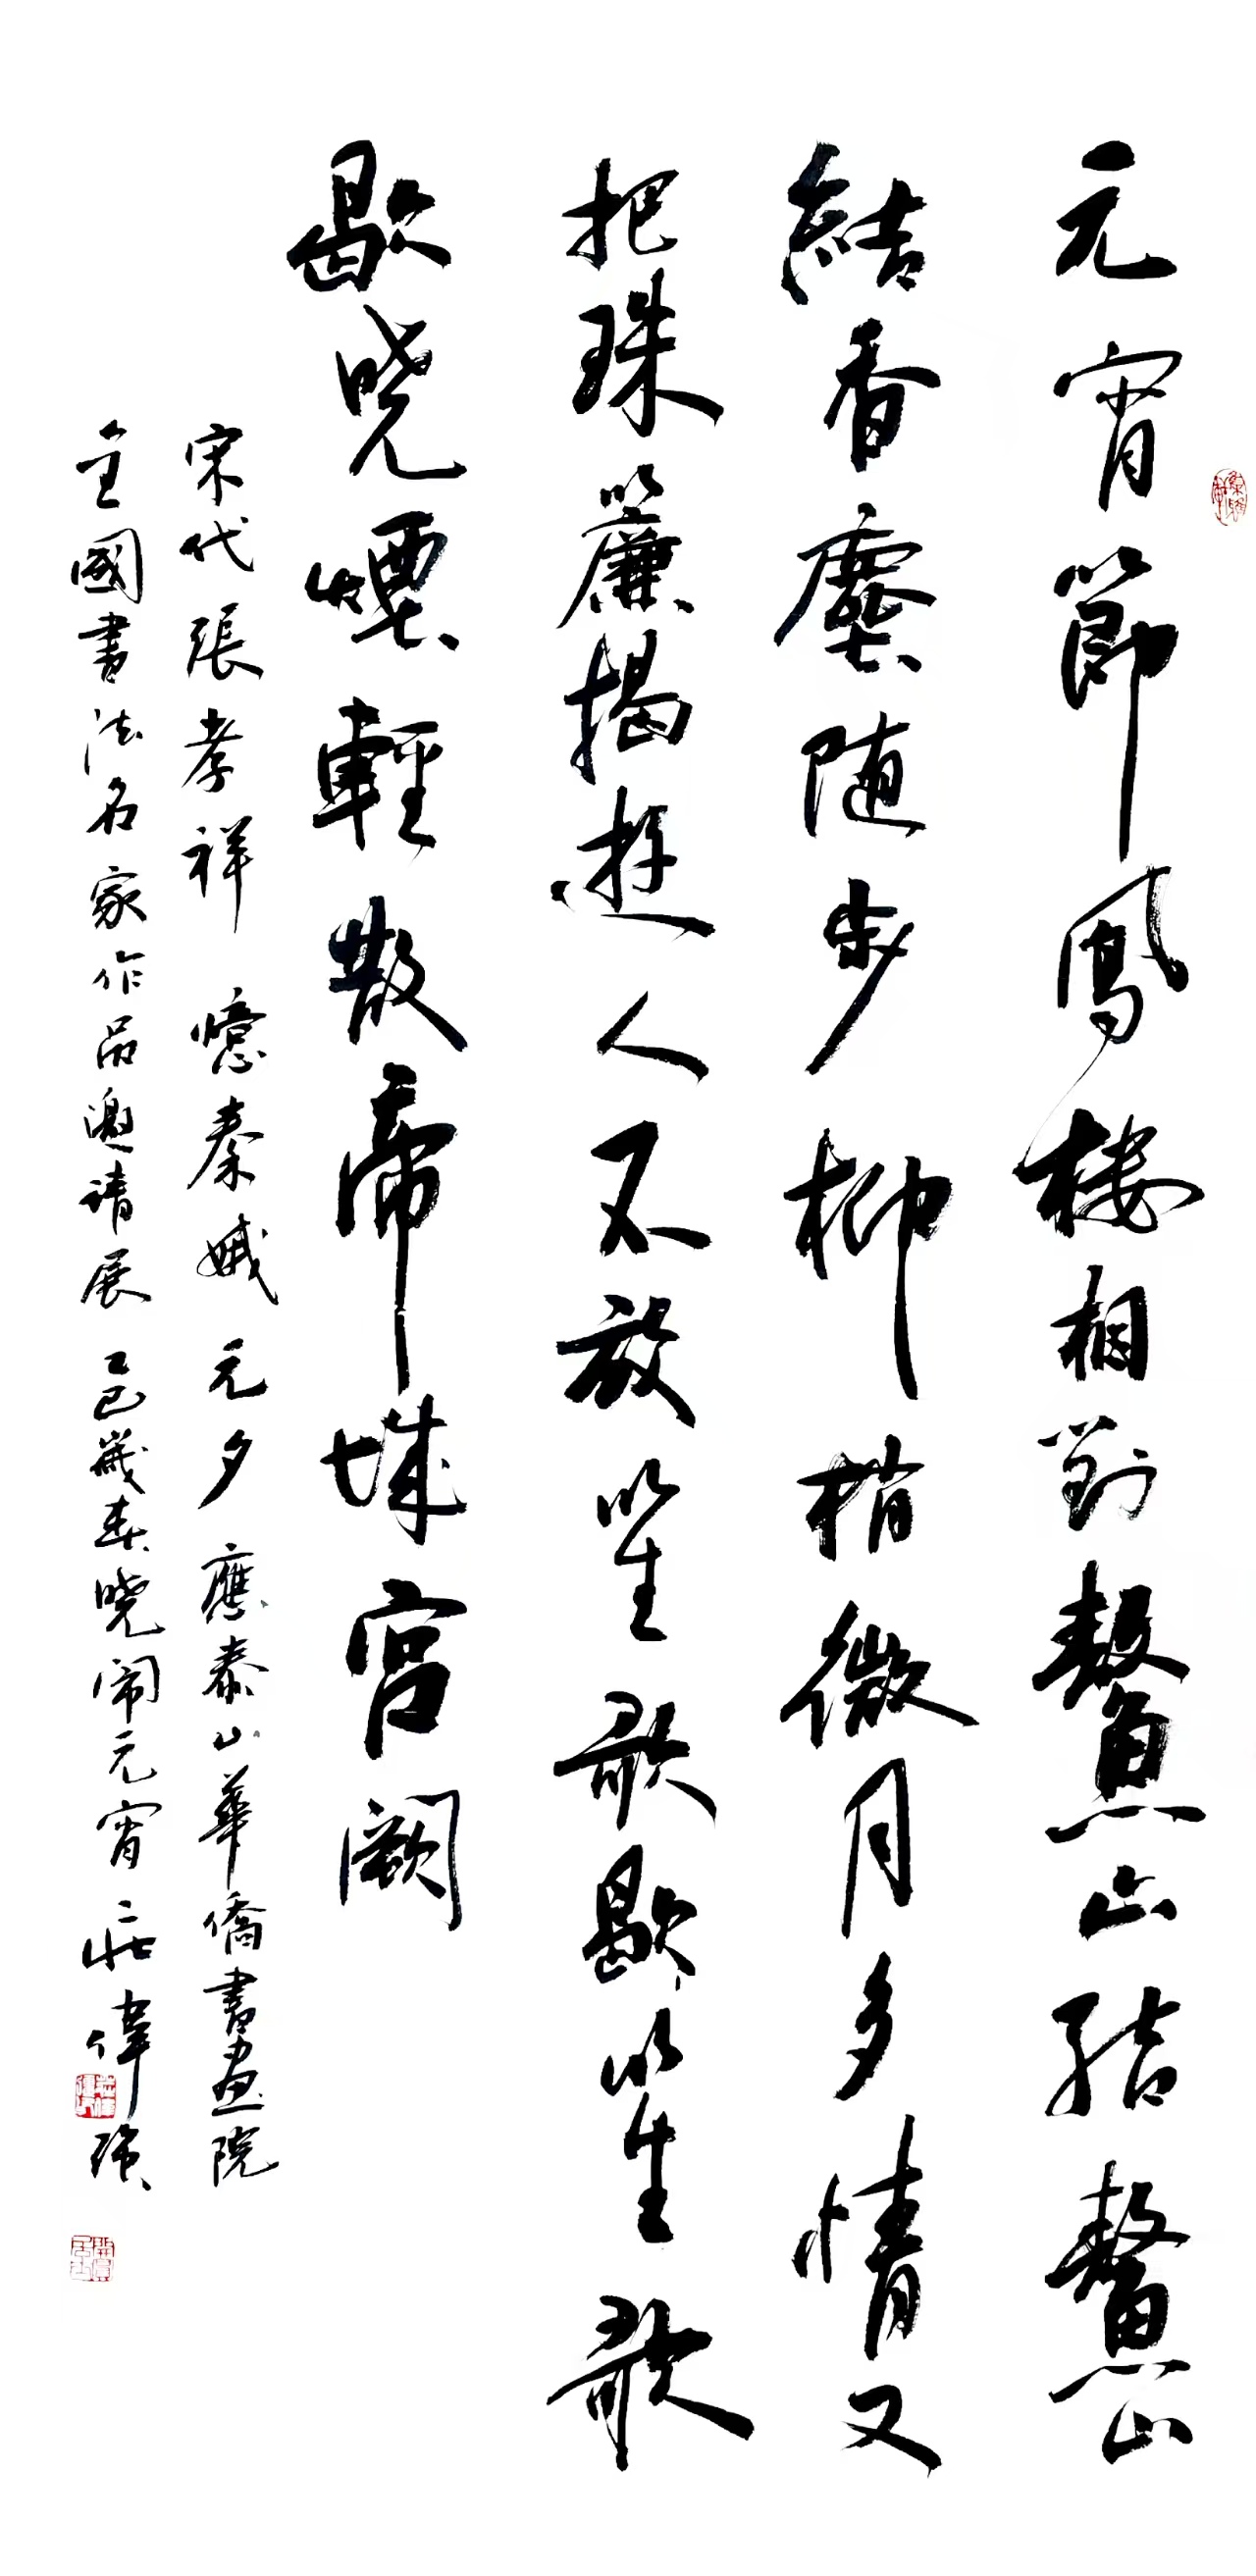 元宵節鳳樓相對鰲山結鰲山
結香塵随步柳梢微月多情又
把珠簾揭遊人不放笙歌歇笙歌
歇曉煙輕散帝城宮闕
宋代張孝祥 憶秦娥 元夕 應泰山華僑書畫院
全國書法名家作品邀請展 乙巳歲春曉鬧元宵 莊偉強